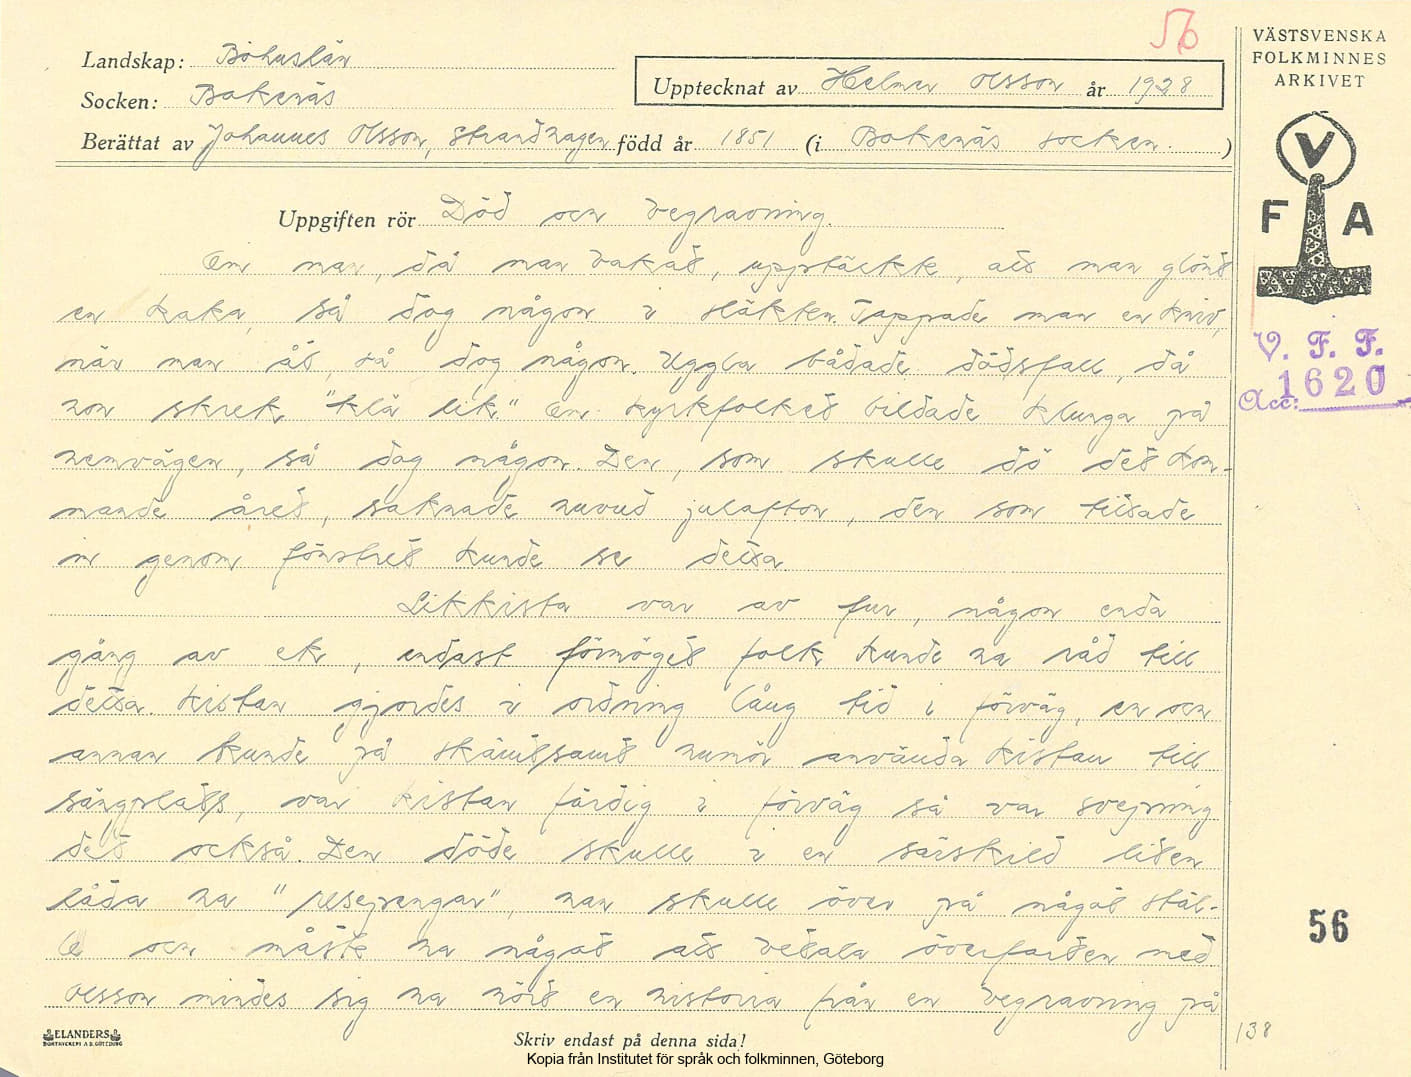 56
VÄSTSVENSKA
FOLKMINNES
ARKIVET
Landskap: Bohuslän
Upptecknat av Helmer Olsson år 1928
Socken: Bokenäs
Berättat av Johannes Olsson, Strandhagen född år 1851 (i Bokenäs socken. )
V
F A
Uppgiften rör Död och begravning.
Om man, då man bakat, upptäckte, att man glömt
en kaka, så dog någon i släkten. Tappade man en kniv,
när man åt, så dog någon. Uggla bådade dödsfall, då
hon skrek "klä lik." Om kyrkfolket bildade klunga på
hemvägen, så dog någon. Den, som skulle dö det kom-
mande året, saknade huvud julafton, den som tittade
in genom fönstret kunde se detta.
V. F. F.
Acc: 1620
Likkista var av fur, någon enda
gång av ek, endast förmöget folk kunde ha råd till
detta. Kistan gjordes i ordning lång tid i förväg, en och
annan kunde på skämtsamt humör använda kistan till
sängplats, var kistan färdig i förväg så var svepning
det också. Den döde skulle i en särskild liten
låda ha "respengar", han skulle över på något stäl-
le och måste ha något att betala överfarten med
Olsson mindes sig ha hört en historia från en begravning på
56
138
ELANDERS
BOKTRYCKERI A.B. GÖTEBORG
Skriv endast på denna sida!
Kopia från Institutet för språk och folkminnen, Göteborg